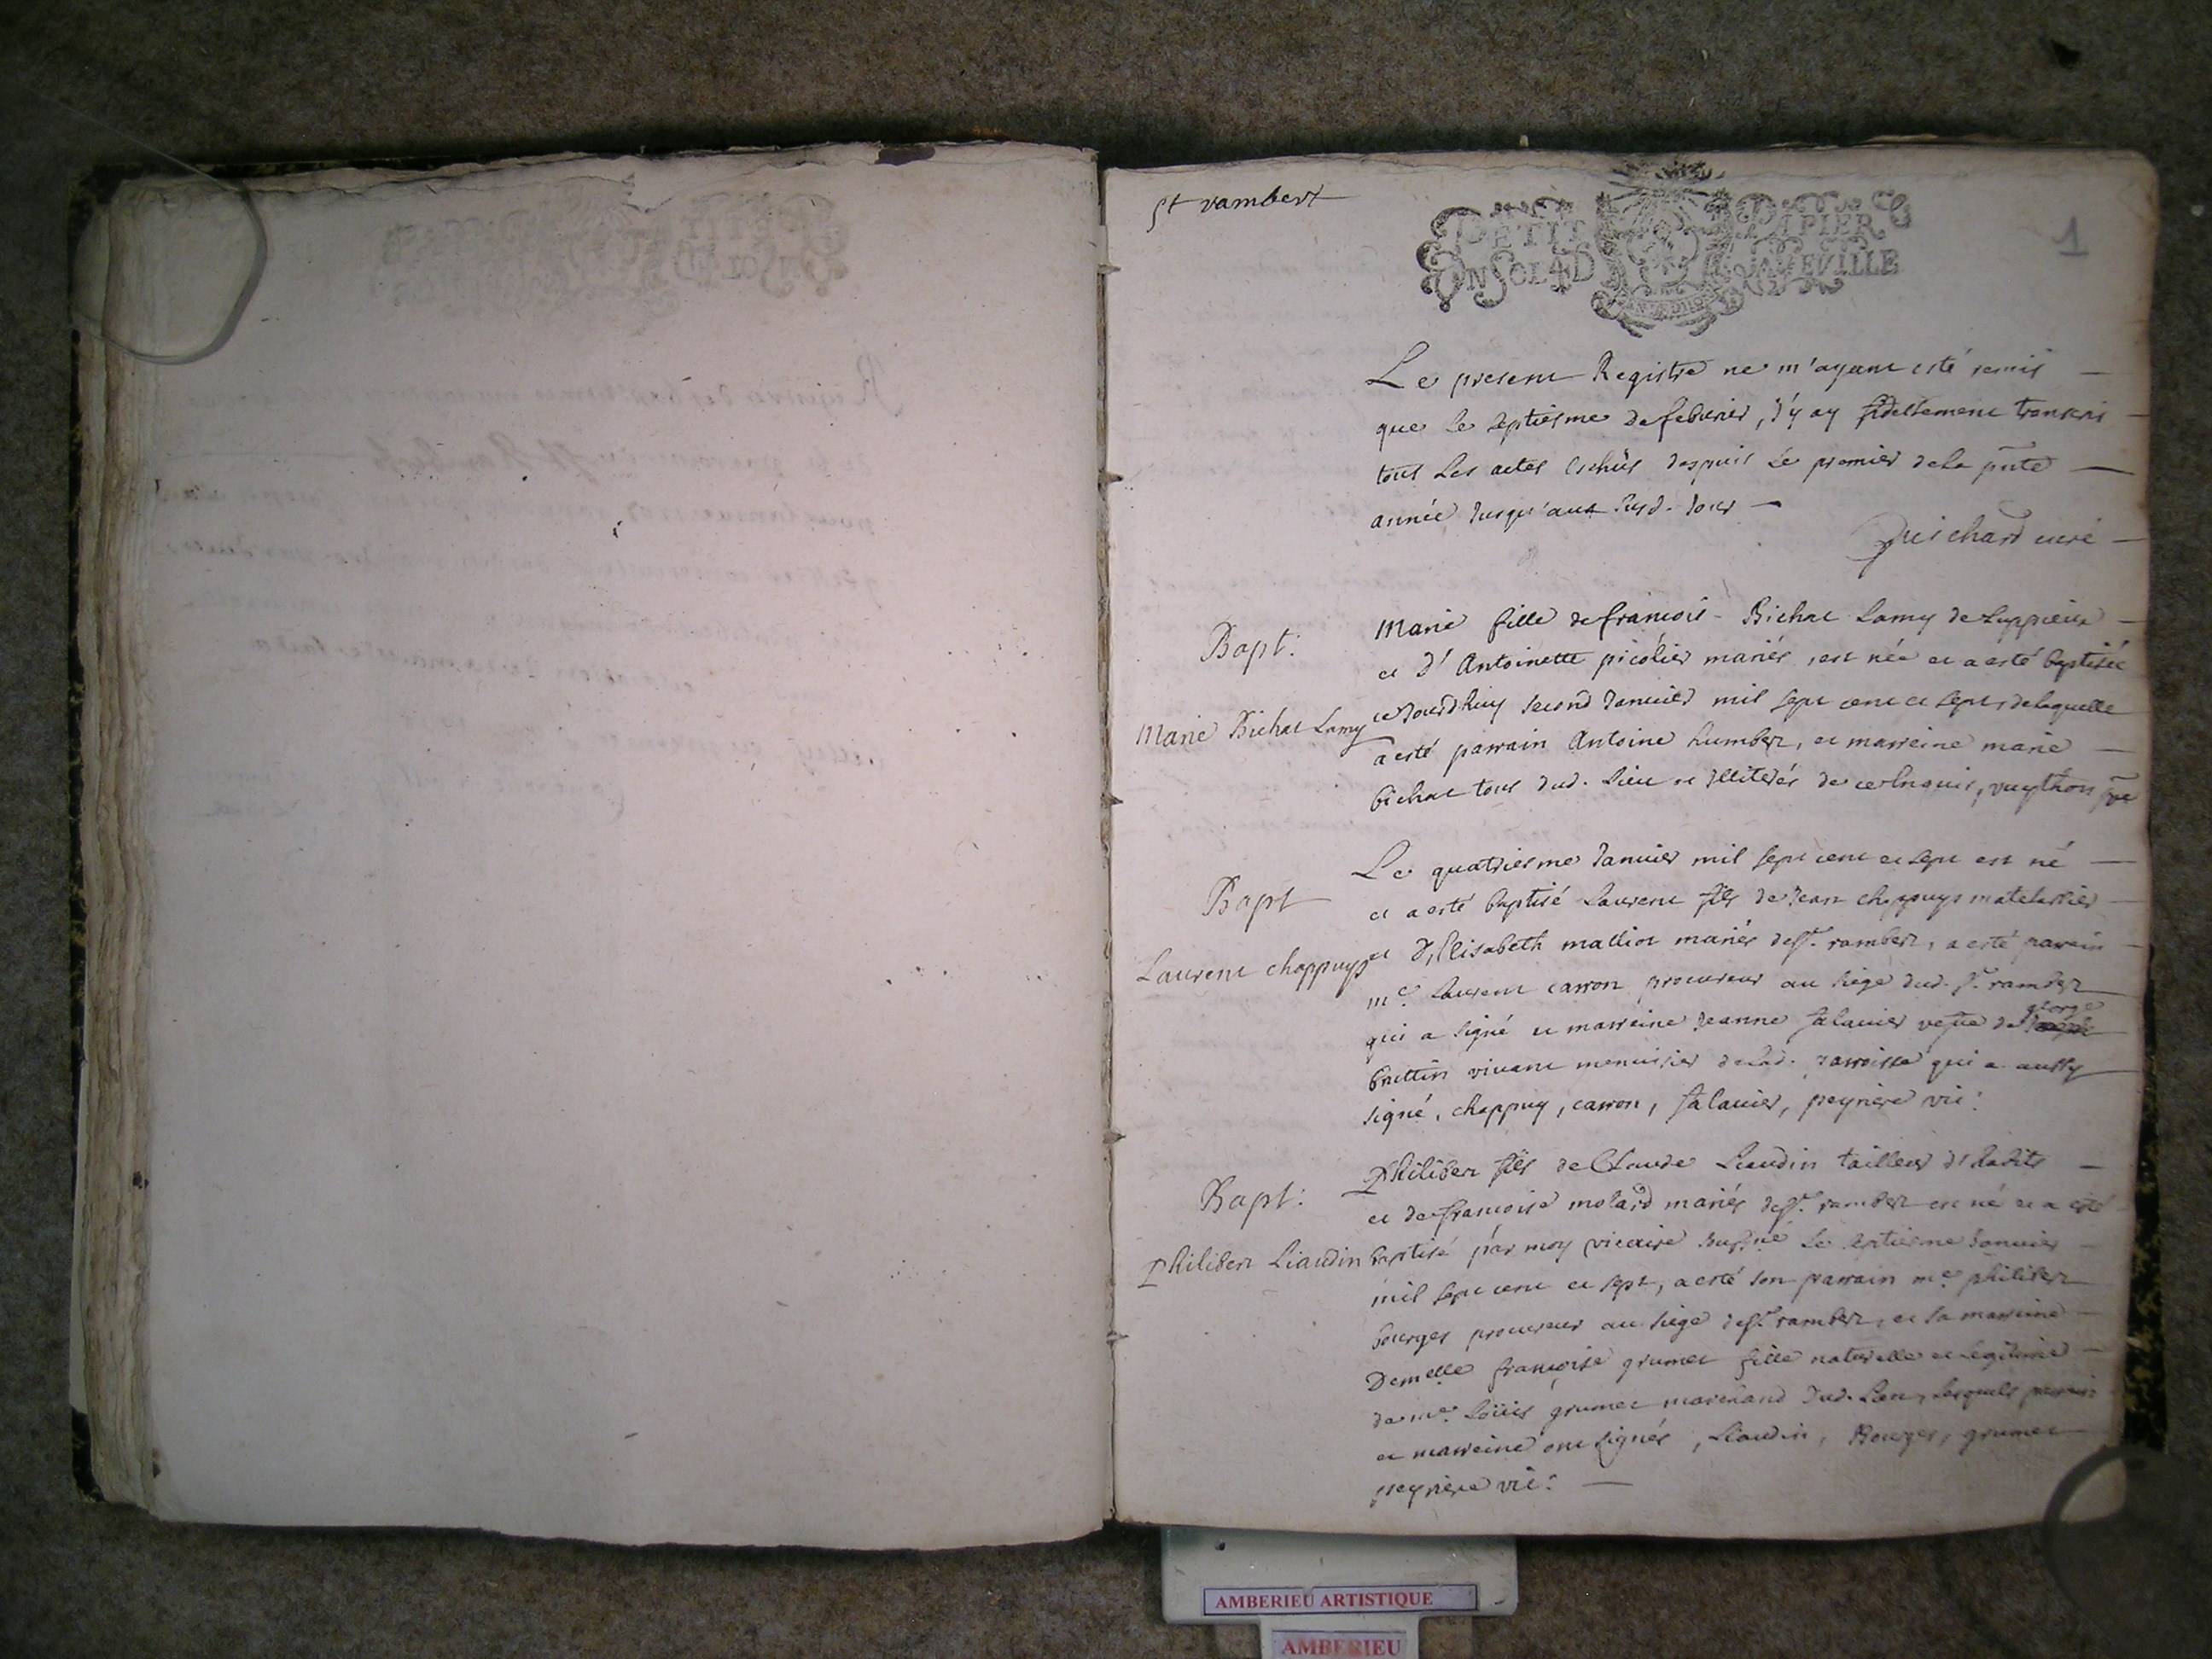 St rambert
PETIT PAPIER
UN SOL 4D LA FEVILLE
1
Le present Registre ne m'ayant esté remis
que le septiesme de febvrier, j'y ay fidellement transcri
tous les actes eschûs despuis le premier de la pnte
année jusqu'aud. jour
Guichard curé
Bapt:
Marie Bichat Lamy
Marie fille de francois Bichat Lamy de
et d'Antoinette picolier mariés, est née et a esté baptisée
ce Jourdhuy second Janvier mil sept cent et sept, de laquelle
a esté parrain Antoine humbert, et marreine marie
bichat tous dud. lieu et illiterés de ce enquis, vuython
Bapt
Laurent chappuys
Le quatriesme Janvier mil sept cent et sept est né
et a esté baptisé Laurent fils de Jean chappuys matelassier
et d'Elisabeth malliot mariés de st. rambert, a esté parrain
me. Laurent carron procureur au siege dud. st. rambert
qui a signé et marreine Jeanne falavier vefve de george
brettin vivant menuisier de lad. parroisse qui a aussy
signé, chappuy, carron, falavier, peyriere vic:
Bapt:
Philibert Liaudin
Philibert fils de Claude Liaudin tailleur d'habits
et de francoise molard mariés de st. rambert est né et a esté
baptisé par moy vicaire sussné le septiesme Janvier
mil sept cent et sept, a esté son parrain me. philibert
bourges procureur au siege de st. rambert, et sa marreine
Demelle francoise grumet fille naturelle et legitime
de me. Loüis grumet marchand dud. Lieu, lesquels parrain
et marreine ont signés, Liaudin, Bourges, grumet
peyriere vic:
AMBERIEU ARTISTIQUE
AMBERIEU